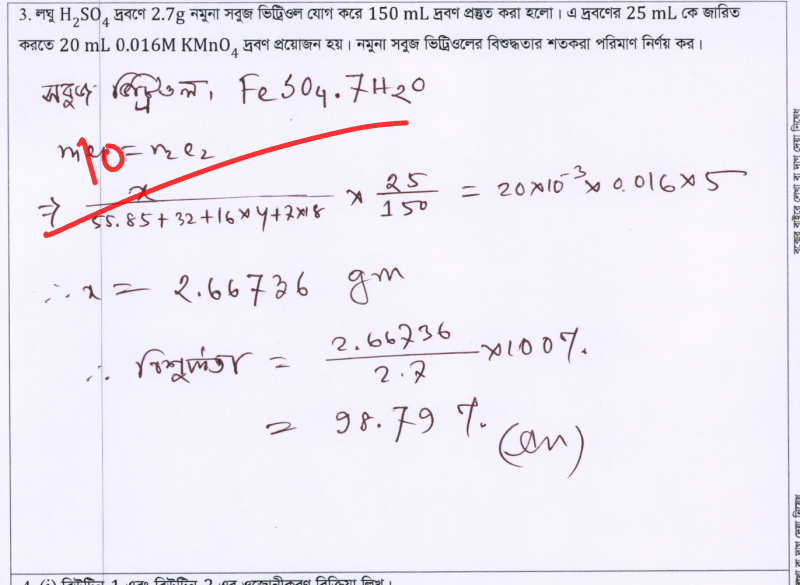 3. লঘু H₂SO₄ দ্রবণে 2.7g নমুনা সবুজ ভিট্রিওল যোগ করে 150 mL দ্রবণ প্রস্তুত করা হলো। এ দ্রবণের 25 mL কে জারিত
করতে 20 mL 0.016M KMnO₄ দ্রবণ প্রয়োজন হয়। নমুনা সবুজ ভিট্রিওলের বিশুদ্ধতার শতকরা পরিমাণ নির্ণয় কর।
সবুজ ভিট্রিওল, FeSO₄.7H₂O
10
= n₂e₂
⇒ x / (55.85+32+16×4+7×18) × 25/150 = 20×10⁻³×0.016×5
∴ x = 2.66736 gm
∴ বিশুদ্ধতা = 2.66736/2.7 ×100%.
= 98.79 %. (Ans)
4. (i) বিউটিন-1 এবং বিউটিন-2 এর ওজোনীকরণ বিক্রিয়া লিখ।